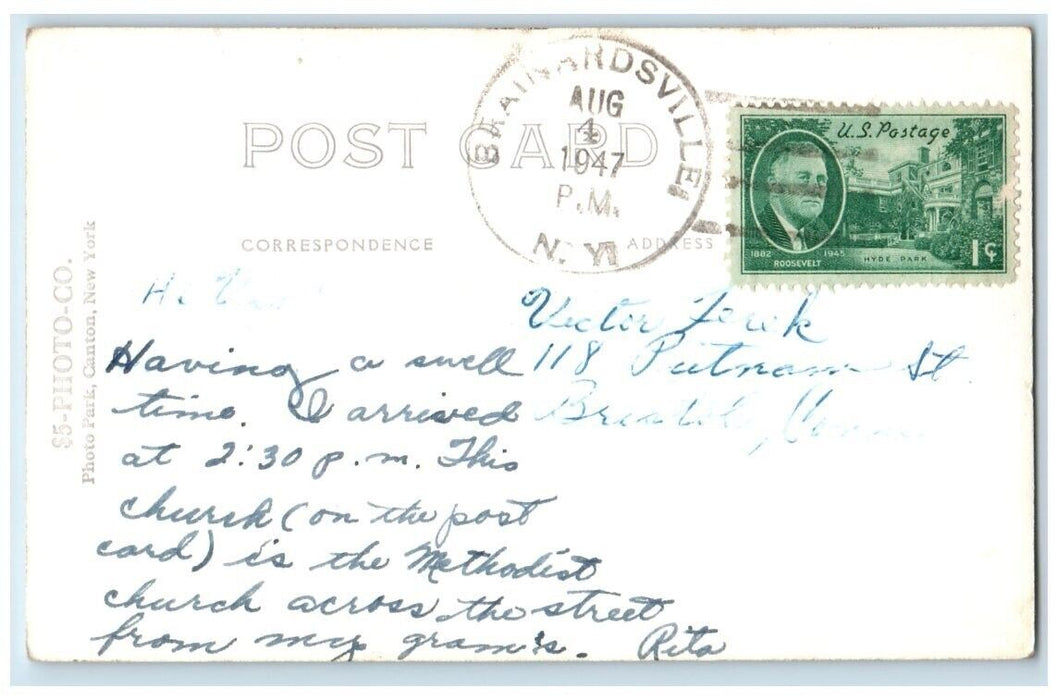 POST CARD
CORRESPONDENCE
ADDRESS
BRAINARDSVILLE
AUG
4
1947
P.M.
N.Y.
U.S. Postage
1882 1945
ROOSEVELT
HYDE PARK
1¢
$5-PHOTO-CO.
Photo Park, Canton, New York
Hi
Having a swell
time. I arrived
at 2:30 p.m. This
church (on the post
card) is the Methodist
church across the street
from my gram's. Rita
Victor
118 Putnam St.
Bristol, Conn